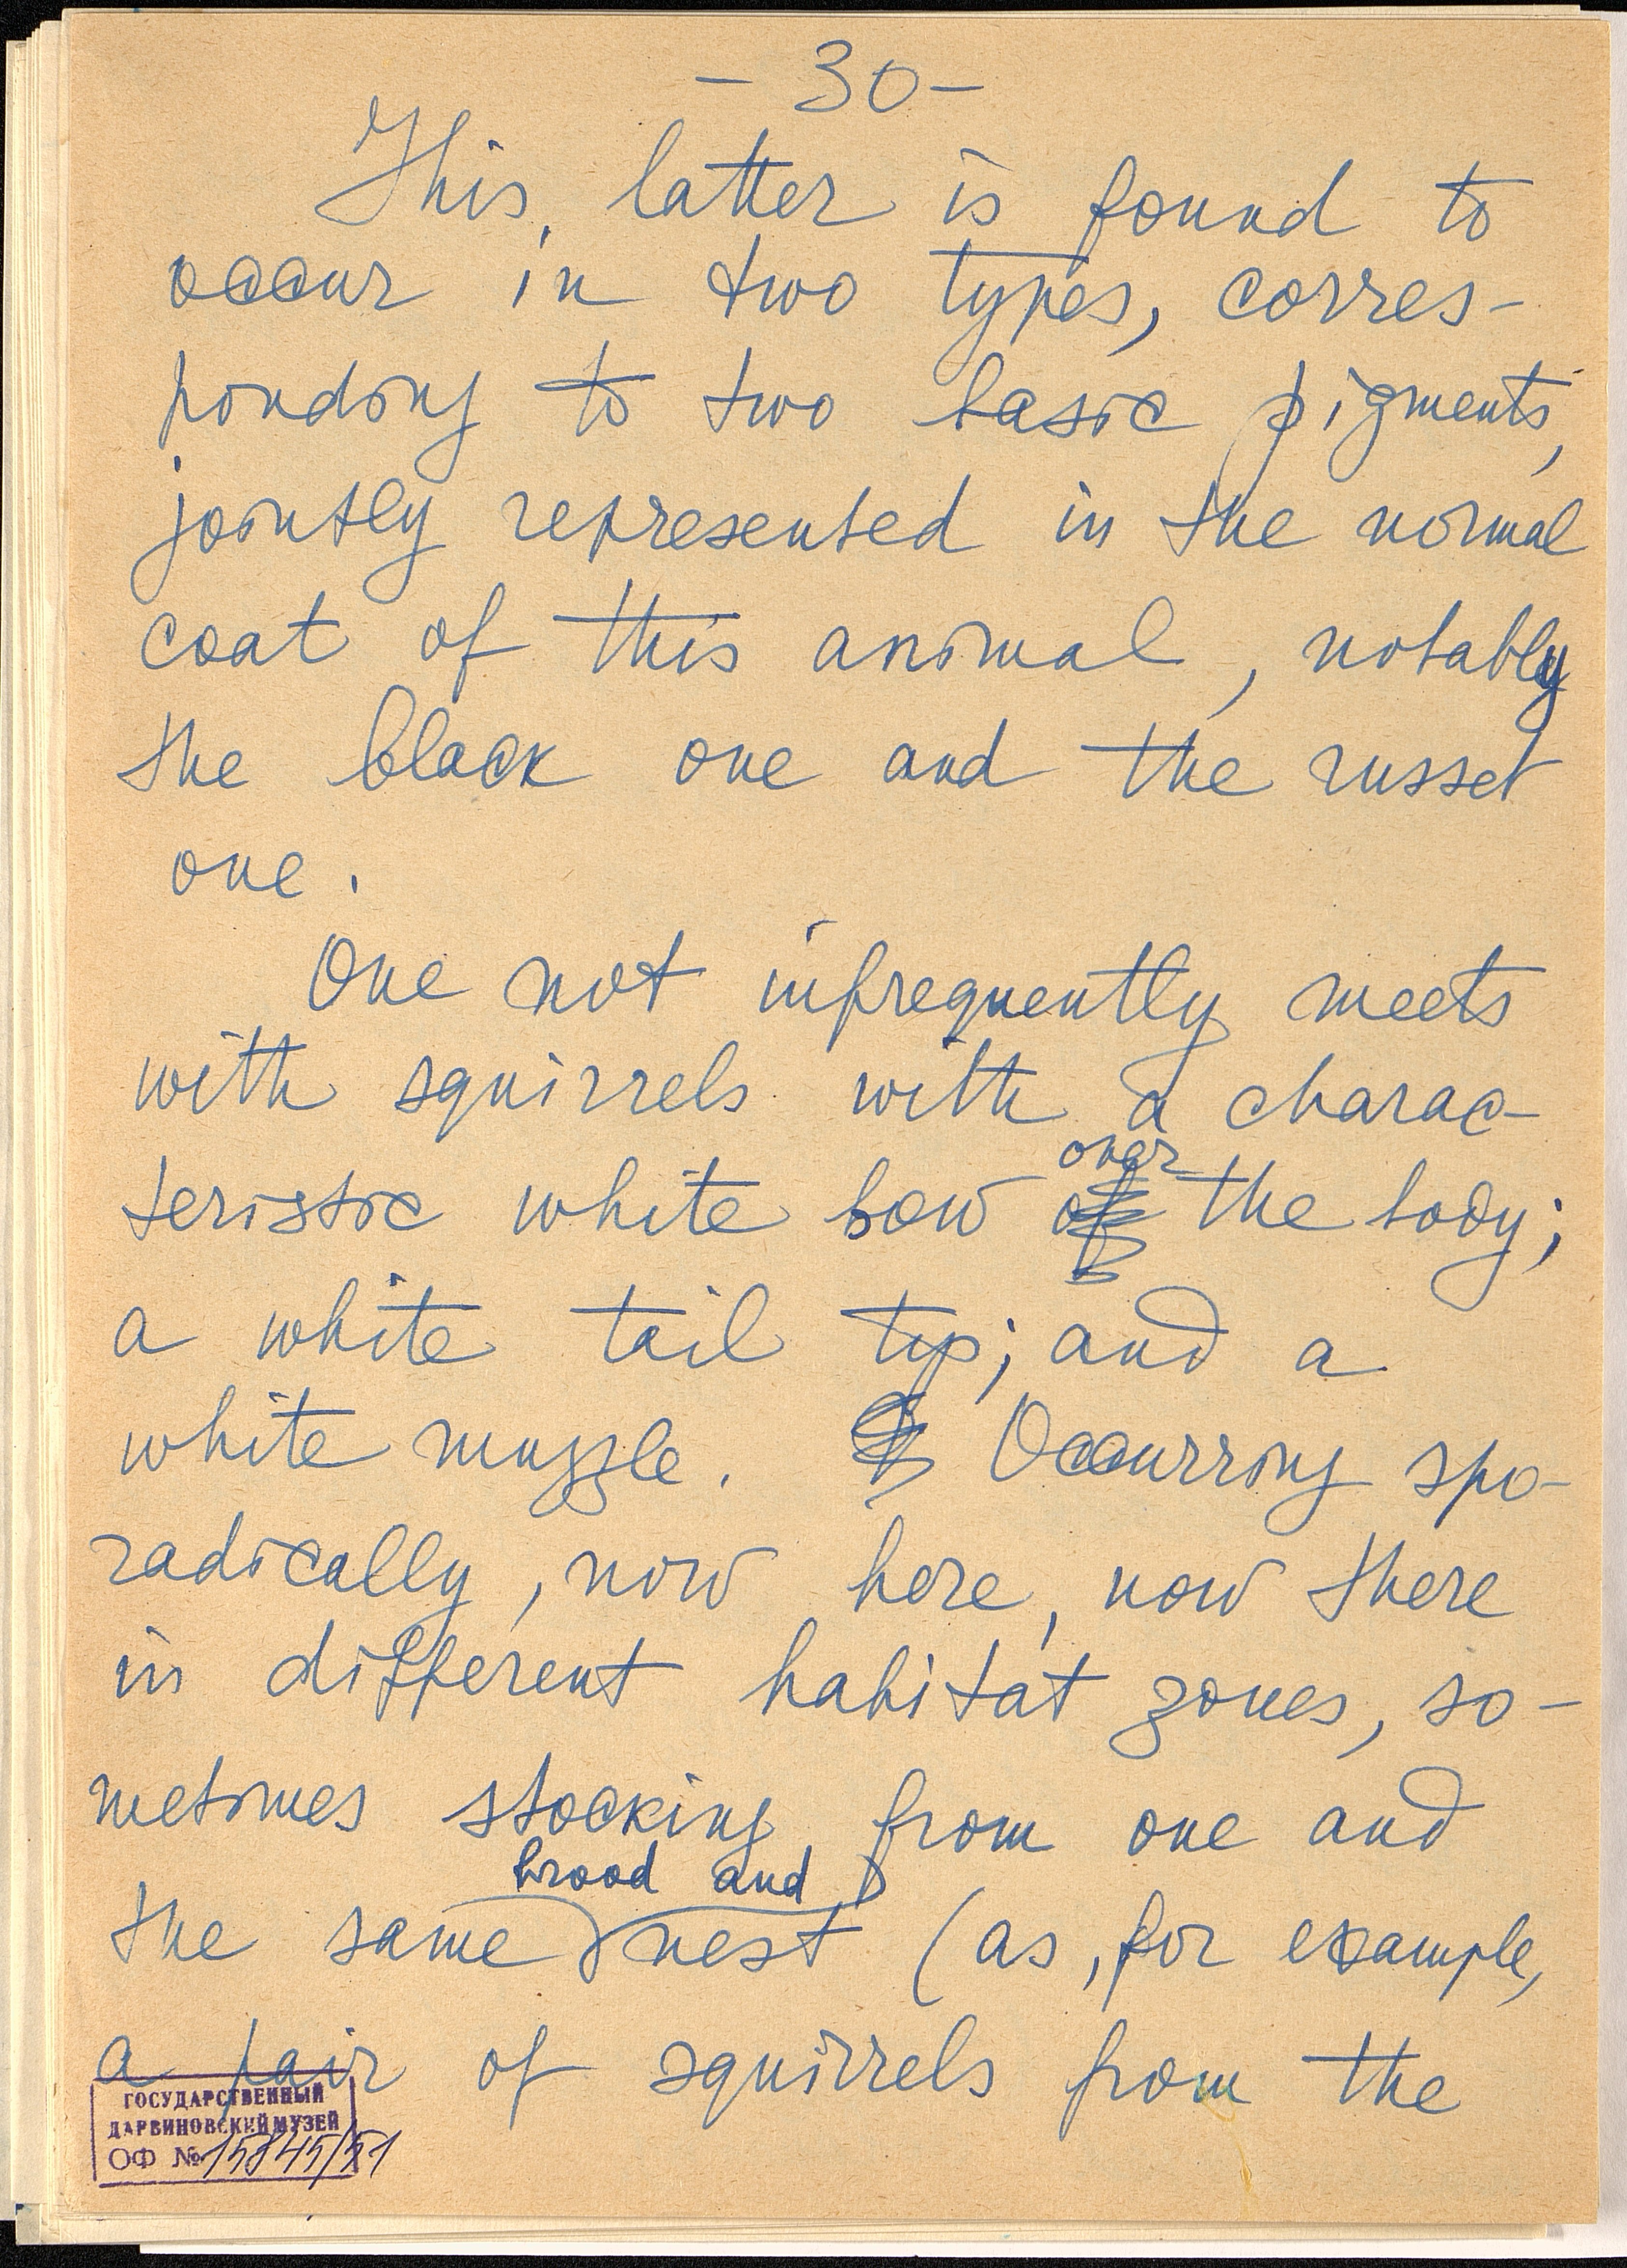 - 30 -
This, latter is found to
occur in two types, corres-
ponding to two basic pigments,
jointly represented in the normal
coat of this animal, notably
the black one and the russet
one.
One not infrequently meets
with squirrels with a charac-
teristic white bow over the body;
a white tail tip; and a
white muzzle. Occurring spo-
radically, now here, now there
in different habitat zones, so-
metimes stocking from one and
the same brood and nest (as, for example,
a pair of squirrels from the
ГОСУДАРСТВЕННЫЙ
ДАРВИНОВСКИЙ МУЗЕЙ
ОФ № 15845/51